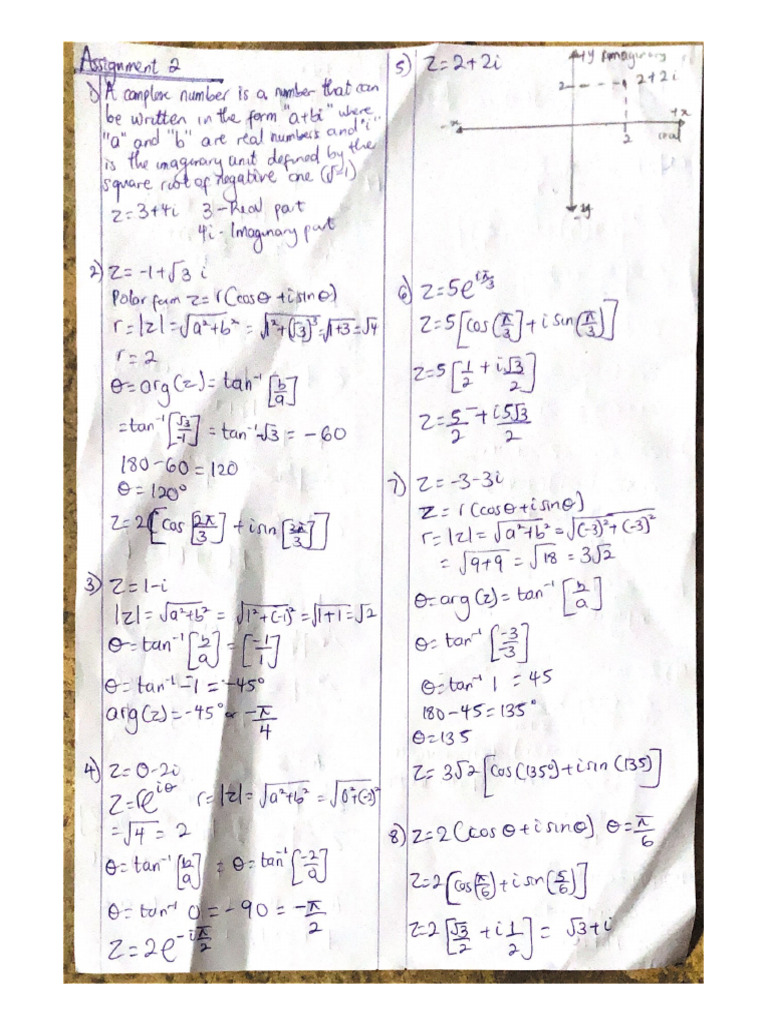 Assignment 2
1) A complex number is a number that can
be written in the form "a+bi" where
"a" and "b" are real numbers and "i"
is the imaginary unit defined by the
square root of negative one (√-1)
z = 3+4i 3 - Real part
4i - Imaginary part
2) z = -1+√3 i
Polar form z = r(cosθ + isinθ)
r = |z| = √a²+b² = √1²+(√3)³ = √1+3 = √4
r = 2
θ = arg(z) = tan⁻¹ [b/a]
= tan⁻¹ [√3/-1] = tan⁻¹ -√3 = -60
180-60 = 120
θ = 120°
z = 2[cos [2π/3] + isin [3π/3]]
3) z = 1-i
|z| = √a²+b² = √1²+(-1)² = √1+1 = √2
θ = tan⁻¹ [b/a] = [-1/1]
θ = tan⁻¹ -1 = -45°
arg(z) = -45° or -π/4
4) z = 0-2i
z = re^iθ r = |z| = √a²+b² = √0²+(-2)²
= √4 = 2
θ = tan⁻¹ [b/a] = θ = tan⁻¹ [-2/0]
θ = tan⁻¹ 0 = -90 = -π/2
z = 2e^-iπ/2
5) z = 2+2i
+y Imaginary
2 2+2i
-x +x
2 real
-y
6) z = 5e^iπ/3
z = 5[cos(π/3) + i sin(π/3)]
z = 5[1/2 + i√3/2]
z = 5/2 + i5√3/2
7) z = -3-3i
z = r(cosθ + isinθ)
r = |z| = √a²+b² = √(-3)²+(-3)²
= √9+9 = √18 = 3√2
θ = arg(z) = tan⁻¹ [b/a]
θ = tan⁻¹ [-3/-3]
θ = tan⁻¹ 1 = 45
180-45 = 135°
θ = 135
z = 3√2 [cos(135°) + isin(135)]
8) z = 2(cosθ + isinθ) θ = π/6
z = 2[cos(π/6) + i sin(5/6)]
z = 2[√3/2 + i 1/2] = √3+i